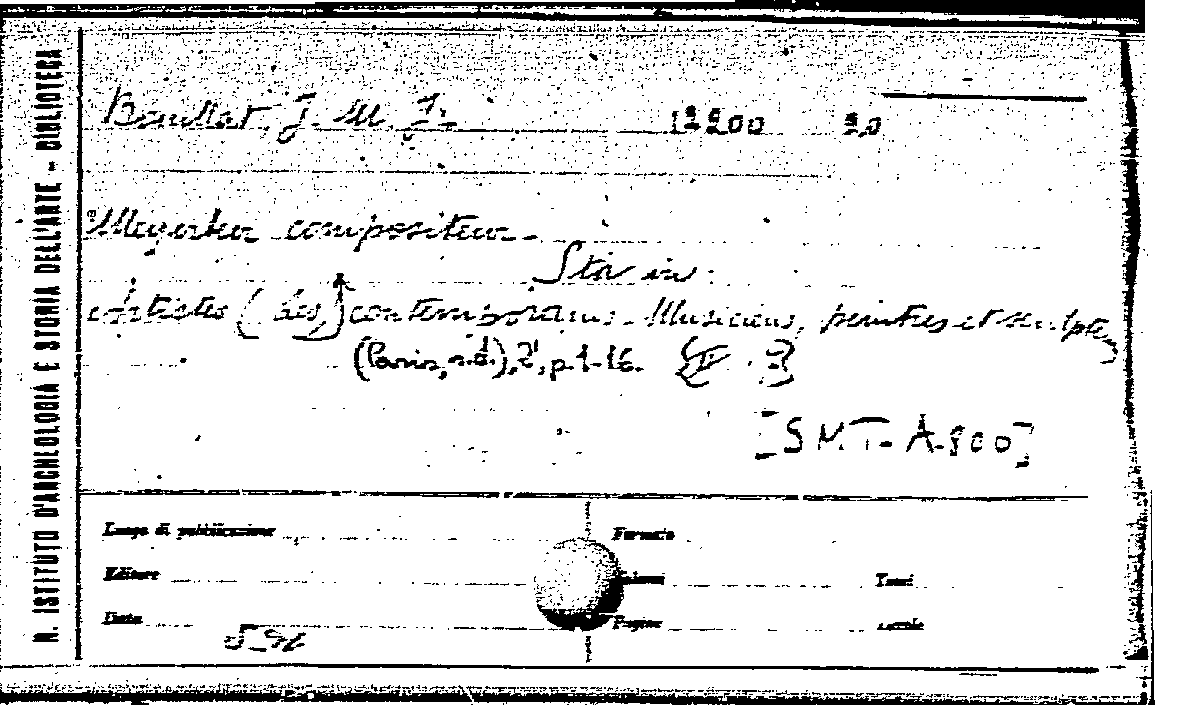 R. ISTITUTO D'ARCHEOLOGIA E STORIA DELL'ARTE - BIBLIOTECA
J. M. Fr. 12200 20
Meyerber compositeur.
Sta in:
Artistes (Les) contemporains. Musiciens, peintres et sculpte
(Paris, s.d.), 2', p. 1-16.
[SMT- A.800]
Luogo di pubblicazione Formato
Editore Volumi Tomi
Data Pagine Tavole